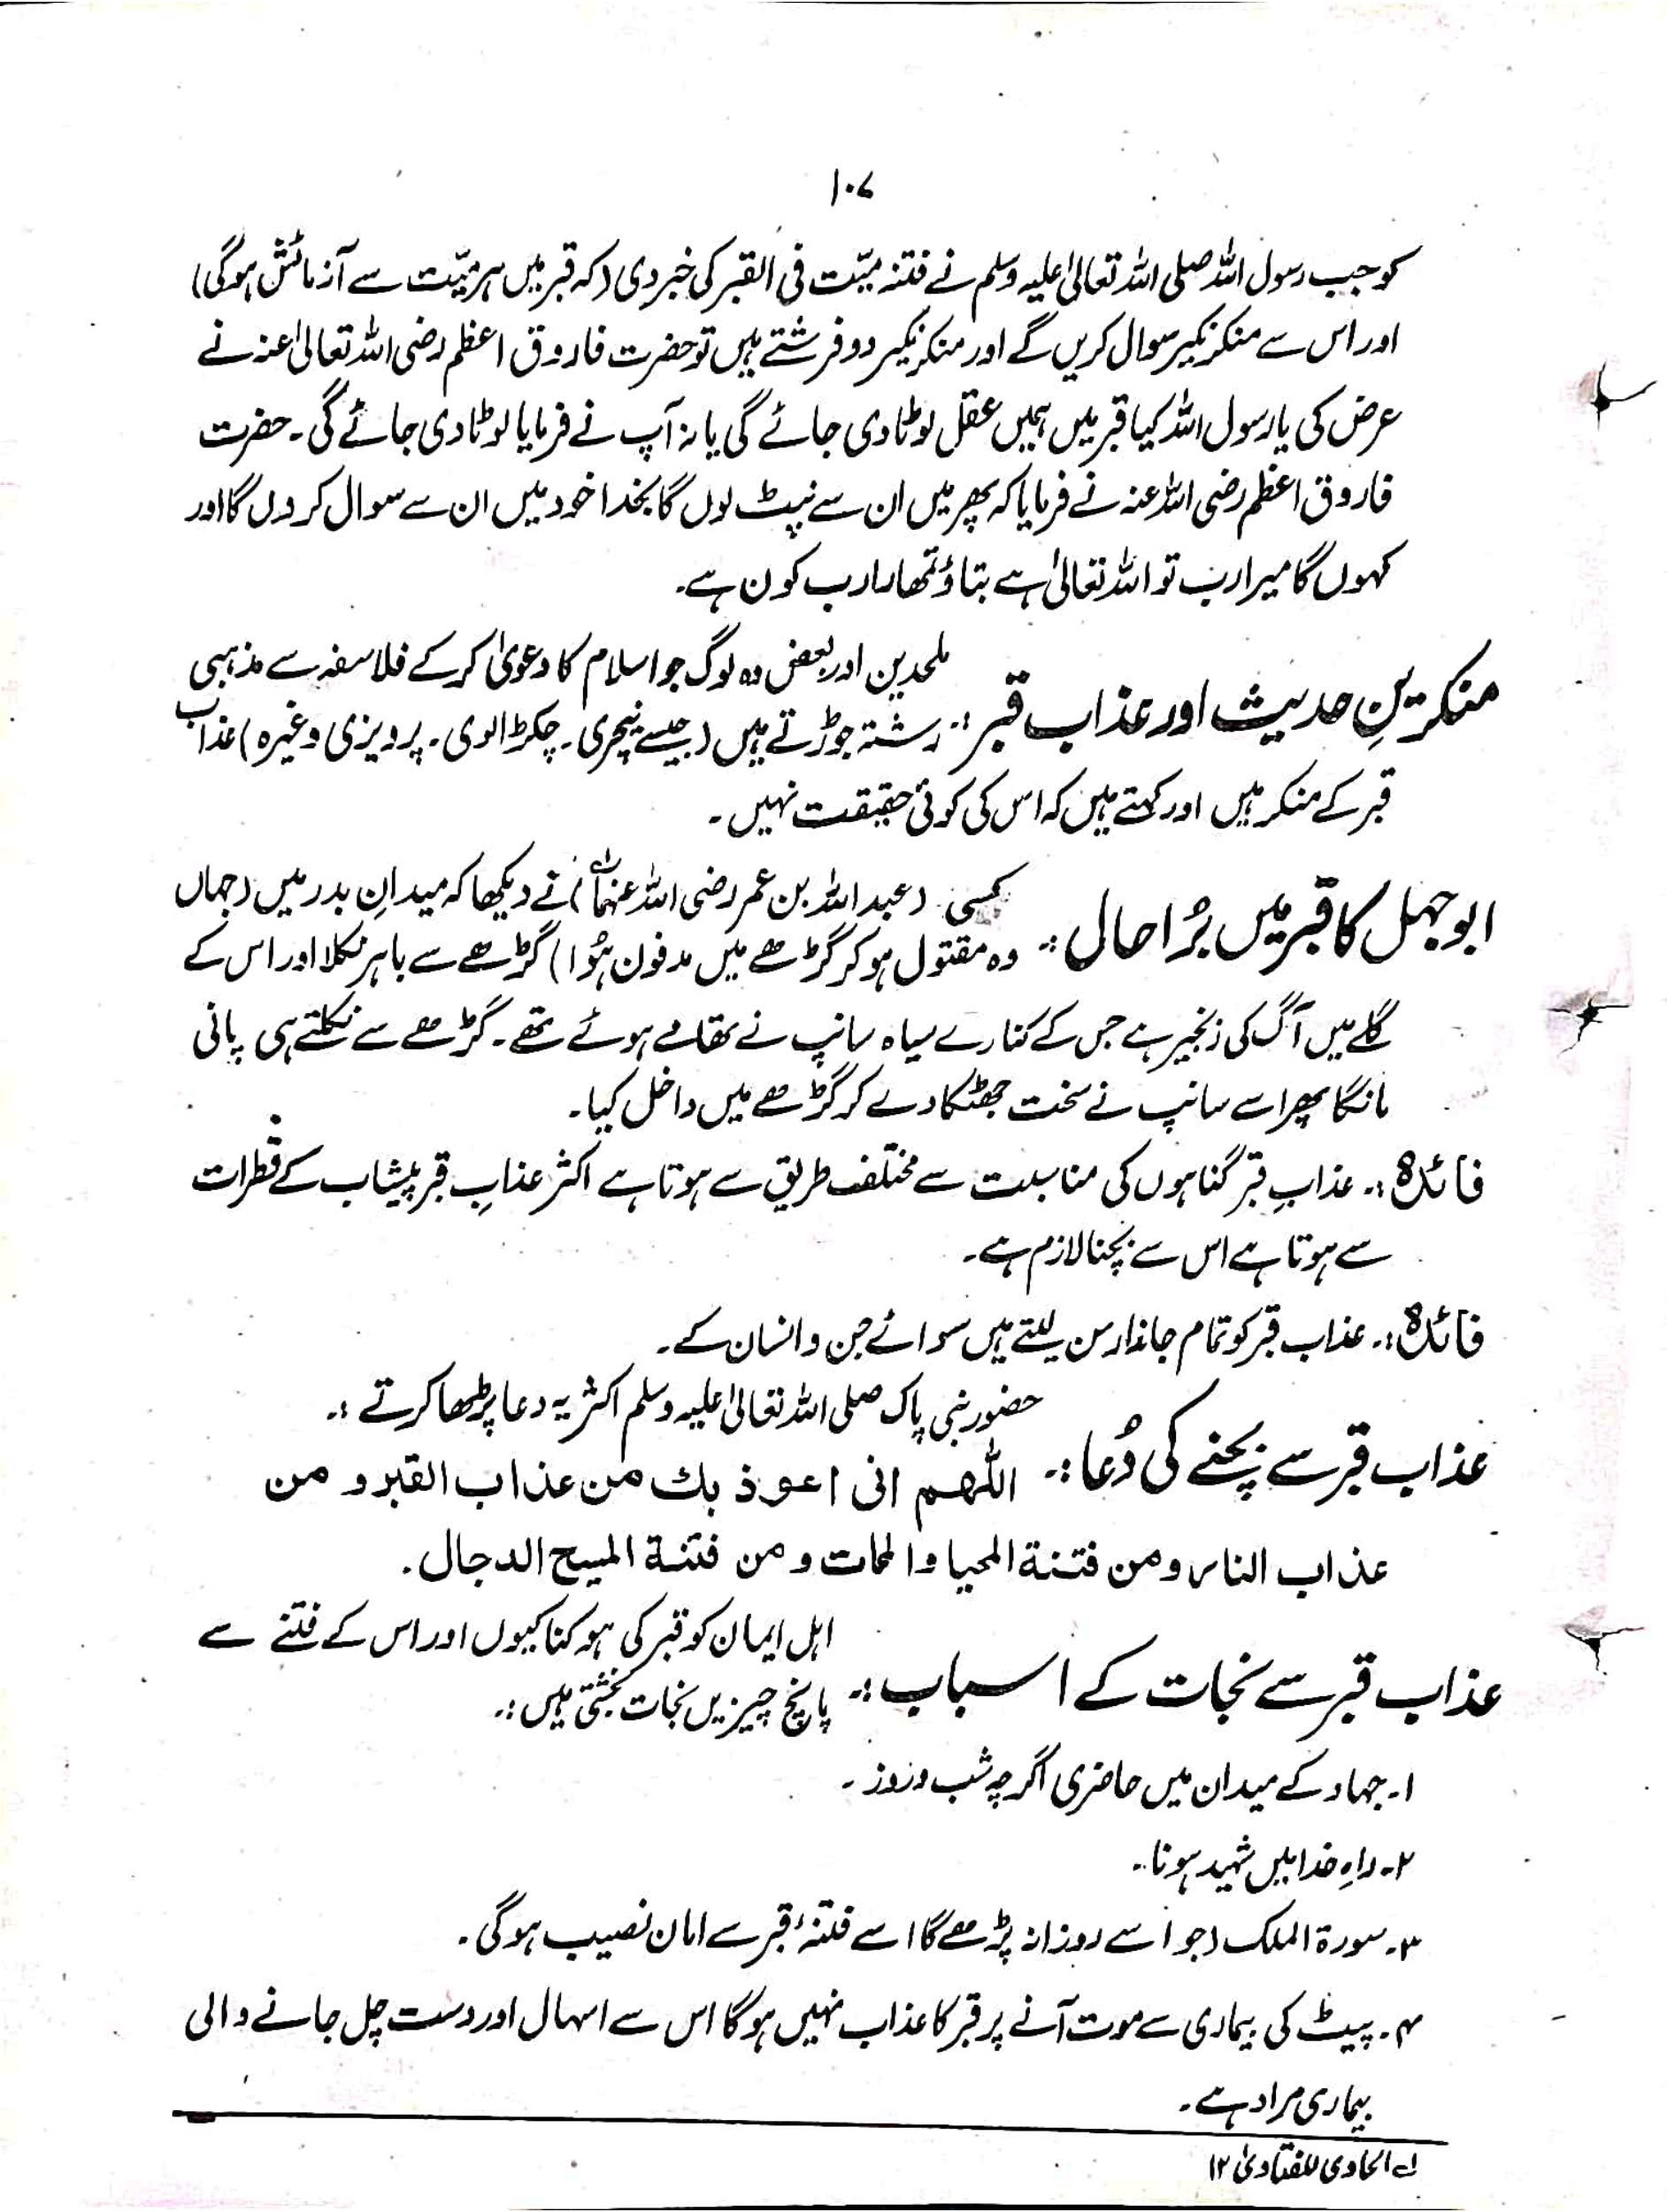 ۱۰۷
کو جب رسول اللہ صلی اللہ تعالیٰ علیہ وسلم نے فتنہ میّت فی القبر کی خبر دی (کہ قبر میں ہر میّت سے آزمائش ہوگی)
اور اس سے منکر نکیر سوال کریں گے اور منکر نکیر دو فرشتے ہیں تو حضرت فاروق اعظم رضی اللہ تعالیٰ عنہ نے
عرض کی یا رسول اللہ کیا قبر میں ہمیں عقل لوٹا دی جائے گی یا نہ آپ نے فرمایا لوٹا دی جائے گی۔ حضرت
فاروق اعظم رضی اللہ عنہ نے فرمایا کہ پھر میں ان سے نپٹ لوں گا بخدا خود میں ان سے سوال کر دوں گا اور
کہوں گا میرا رب تو اللہ تعالیٰ ہے بتاؤ تمھارا رب کون ہے۔
منکرینِ حدیث اور عذاب قبر :۔ ملحدین اور بعض وہ لوگ جو اسلام کا دعویٰ کر کے فلاسفہ سے مذہبی
رشتہ جوڑتے ہیں (جیسے نیچری۔ چکڑالوی۔ پرویزی وغیرہ) عذاب
قبر کے منکر ہیں اور کہتے ہیں کہ اس کی کوئی حقیقت نہیں۔
ابوجہل کا قبر میں بُرا حال :۔ کسی (عبداللہ بن عمر رضی اللہ عنہما)۱؎ نے دیکھا کہ میدانِ بدر میں (جہاں
وہ مقتول ہو کر گڑھے میں مدفون ہُوا) گڑھے سے باہر نکلا اور اس کے
گلے میں آگ کی زنجیر ہے جس کے کنارے سیاہ سانپ نے تھامے ہوئے تھے۔ گڑھے سے نکلتے ہی پانی
مانگا پھر اسے سانپ نے سخت جھٹکا دے کر گڑھے میں داخل کیا۔
فائدہ :۔ عذابِ قبر گناہوں کی مناسبت سے مختلف طریق سے ہوتا ہے اکثر عذابِ قبر پیشاب کے قطرات
سے ہوتا ہے اس سے بچنا لازم ہے۔
فائدہ :۔ عذاب قبر کو تمام جاندار سن لیتے ہیں سوائے جن و انسان کے۔
عذاب قبر سے بچنے کی دُعا :۔ حضور نبی پاک صلی اللہ تعالیٰ علیہ وسلم اکثر یہ دعا پڑھا کرتے :۔
اللّٰھم انی اعوذ بك من عذاب القبر و من
عذاب النار و من فتنة المحیا والممات و من فتنة المسیح الدجال۔
عذاب قبر سے نجات کے اسباب :۔ اہل ایمان کو قبر کی ہولناکیوں اور اس کے فتنے سے
پانچ چیزیں نجات بخشتی ہیں :۔
۱۔ جہاد کے میدان میں حاضری اگرچہ شب و روز۔
۲۔ راہِ خدا میں شہید ہونا۔
۳۔ سورۃ الملک (جو اسے روزانہ پڑھے گا اسے فتنۂ قبر سے امان نصیب ہوگی۔
۴۔ پیٹ کی بیماری سے موت آنے پر قبر کا عذاب نہیں ہوگا اس سے اسہال اور دست چل جانے والی
بیماری مراد ہے۔
۱؎ الحاوی للفتاویٰ ۱۲